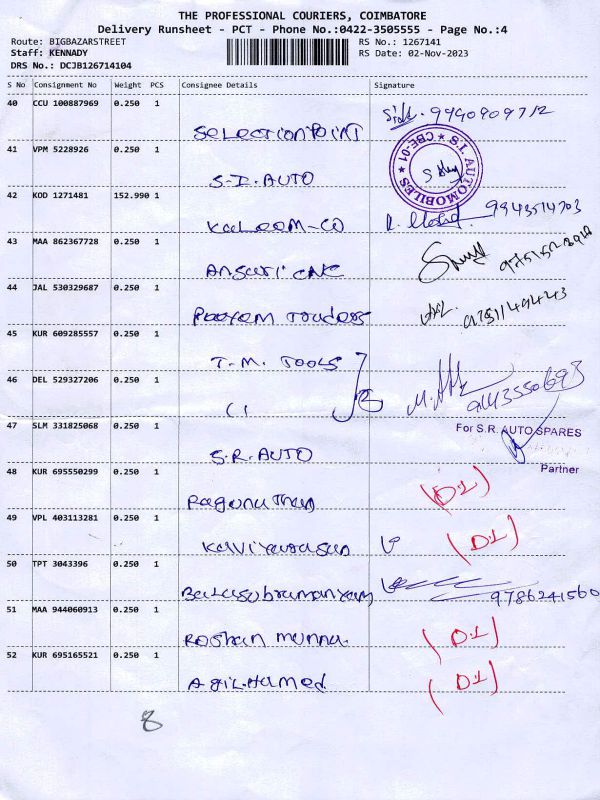 THE PROFESSIONAL COURIERS, COIMBATORE
Delivery Runsheet - PCT - Phone No.:0422-3505555 - Page No.:4
Route: BIGBAZARSTREET
Staff: KENNADY
DRS No.: DCJB126714104
RS No.: 1267141
RS Date: 02-Nov-2023
S No Consignment No Weight PCS Consignee Details Signature
40 CCU 100887969 0.250 1
Selection Point 9940909712
41 VPM 5228926 0.250 1
S.I. AUTO
S.I. AUTOMOBILES ★ CBE-01 ★
42 KOD 1271481 152.990 1
Kaleem-co 9943514703
43 MAA 862367728 0.250 1
Ansari cnc
44 JAL 530329687 0.250 1
Traders
45 KUR 609285557 0.250 1
T.M. TOOLS
46 DEL 529327206 0.250 1
( ) 2
47 SLM 331825068 0.250 1
S.R. AUTO
For S.R. AUTO SPARES
Partner
48 KUR 695550299 0.250 1
Ragunathan (D1)
49 VPL 403113281 0.250 1
Kaviyarasan (D1)
50 TPT 3043396 0.250 1
Balasubramanyam 9786241560
51 MAA 944060913 0.250 1
Roshan munna. (D1)
52 KUR 695165521 0.250 1
Agil Hamed (D1)
8